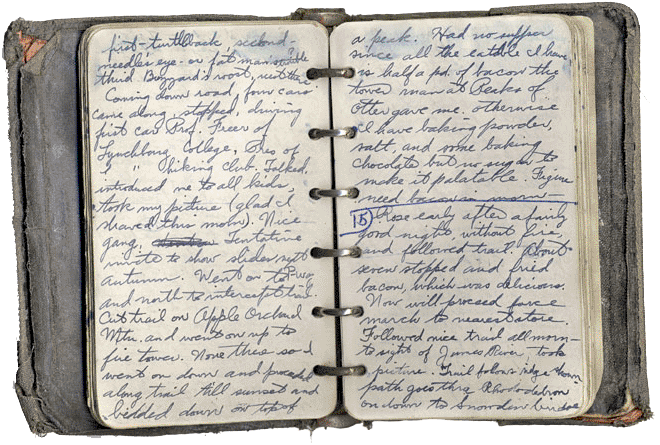 first-turtleback, second-
needle's eye-or fat man's trouble
third Buzzard's roost, next there
Coming down road, four cars
came along, stopped, driving
first car Prof. Freer of
Lynchburg College, Pres of
L " hiking club. Talked,
introduced me to all kids,
took my picture (glad I
shaved this morn). Nice
gang, Tentative
invite to show slides next
autumn. Went on to Pkwy
and north to intercept trail.
Cut trail on Apple Orchard
Mtn. and went on up to
fire tower. None there so I
went on down and proceeded
along trail till sunset and
bedded down on top of
a peak. Had no supper
since all the eatable I have
is half a pd. of bacon the
tower man at Peaks of
Otter gave me. Otherwise
I have baking powder,
salt, and some baking
chocolate but no sugar to
make it palatable. Figure
need bacon in morn
15 Rose early after a fairly
good night without fire
and followed trail. About
seven stopped and fried
bacon, which was delicious.
Now will proceed force
march to nearest store.
Followed nice trail all morn-
to sight of James River, took
picture. Trail follows ridge then
path goes thru Rhododendron
on down to Snowden